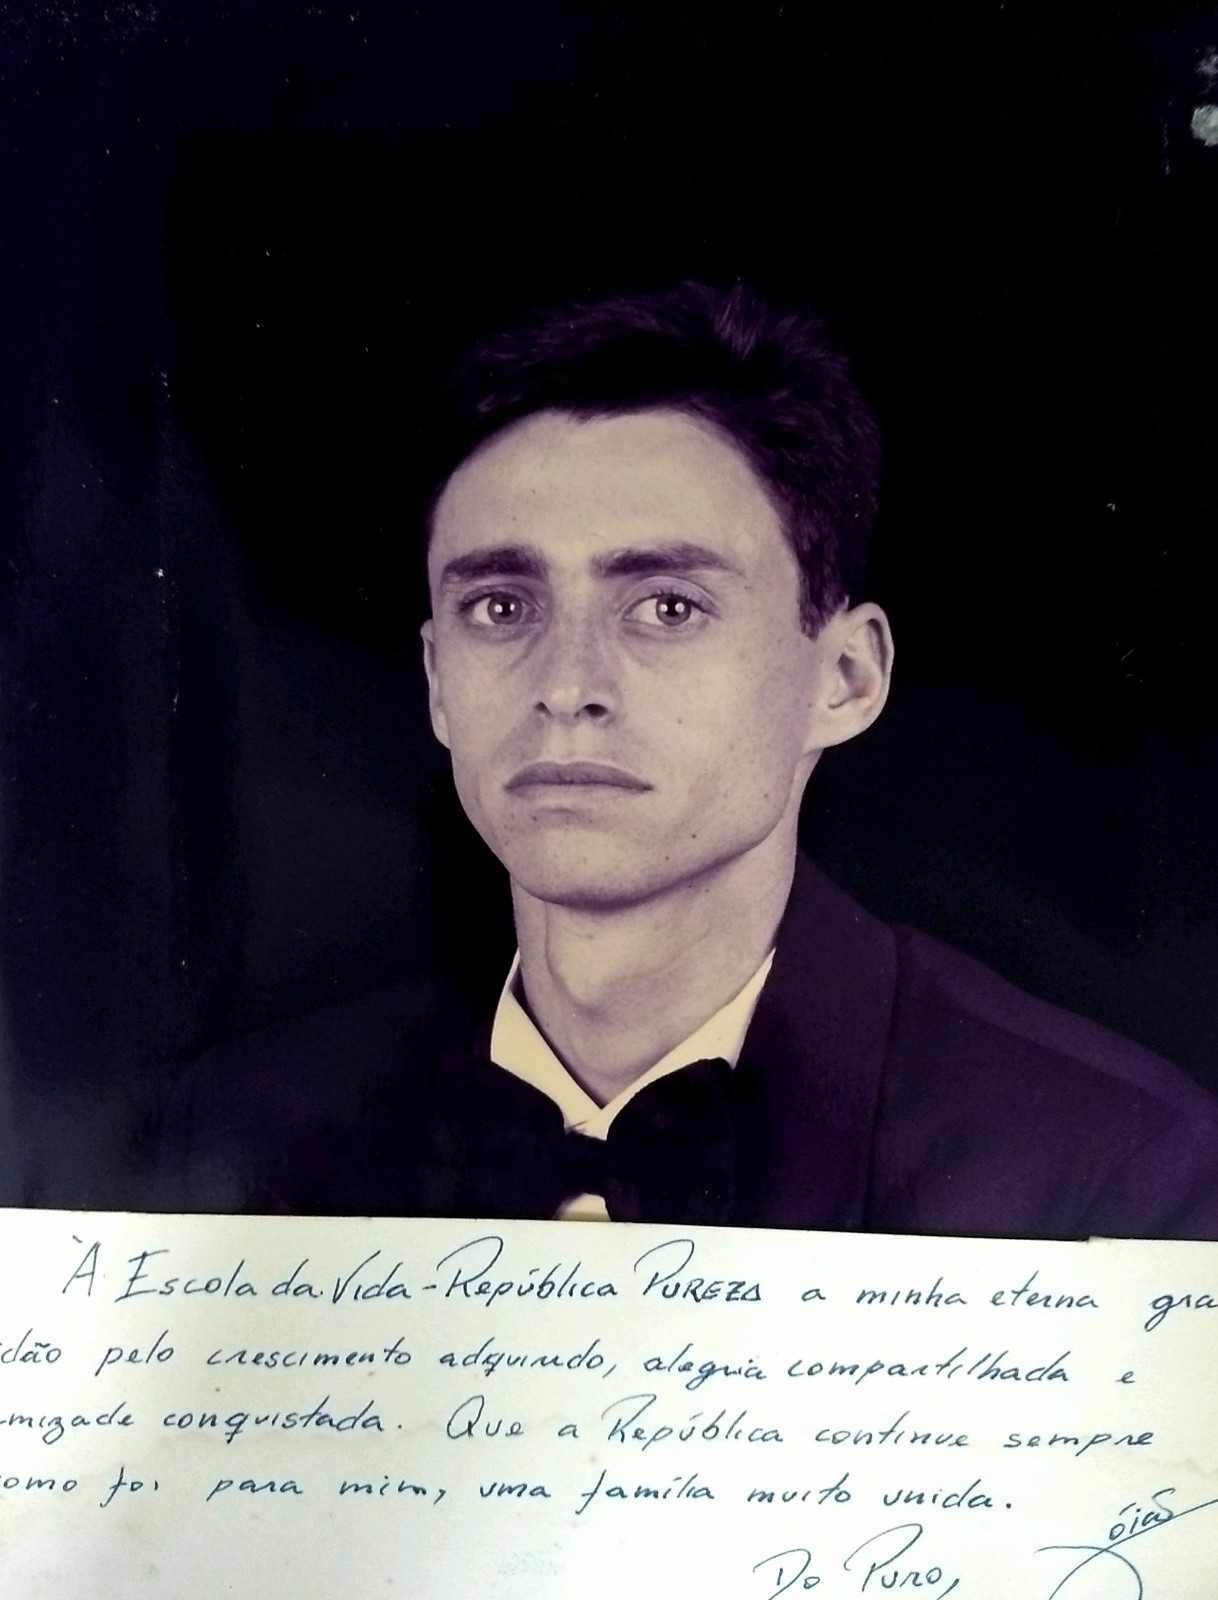 À Escola da Vida - República PUREZA a minha eterna gra
dão pelo crescimento adquirido, alegria compartilhada e
mizade conquistada. Que a República continue sempre
omo foi para mim, uma família muito unida.
Do Puro,
óias